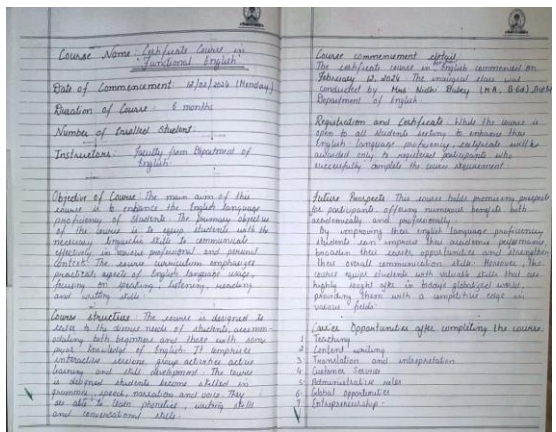 Course Name: Certificate Course in
"Functional English"
Date of Commencement: 12/02/2024 (Monday)
Duration of Course: 6 months
Number of Enrolled Student
Instructors: Faculty from Department of
English.
Objective of Course: The main aim of this
course is to enhance the English language
proficiency of students. The primary objective
of the course is to equip students with the
necessary linguistic skills to communicate
effectively in various professional and personal
context. The course curriculum emphasizes
practical aspects of English language usage,
focusing on speaking, listening, reading
and writing skills.
Course structure: The course is designed to
cater to the diverse needs of students, accomm-
odating both beginners and those with some
prior knowledge of English. It comprises
interactive sessions, group activities active
learning and skill development. The course
is designed students become skilled in
grammar, speech, narration and voice. They
are able to learn phonetics, writing skills
and conversational skills.
Course commencement detail
The certificate course in English commenced on
February 12, 2024. The inaugural class was
conducted by Mrs Nidhi Dubey (M.A, B.Ed)
Department of English.
Registration and Certificate: While the course is
open to all students seeking to enhance their
English language proficiency, certificate will be
awarded only to registered participants who
successfully complete the course requirement.
Future Prospects: This course holds promising prospects
for participants, offering numerous benefits both
academically and professionally.
By improving their English language proficiency,
students can improve their academic performance,
broaden their career opportunities and strengthen
their overall communication skills. Moreover, the
course equips students with valuable skills that are
highly sought after in today's globalized world,
providing them with a competitive edge in
various fields.
Career Opportunities after completing the course.
1. Teaching
2. Content writing
3. Translation and interpretation
4. Customer Service
5. Administrative roles
6. Global opportunities
7. Entrepreneurship.